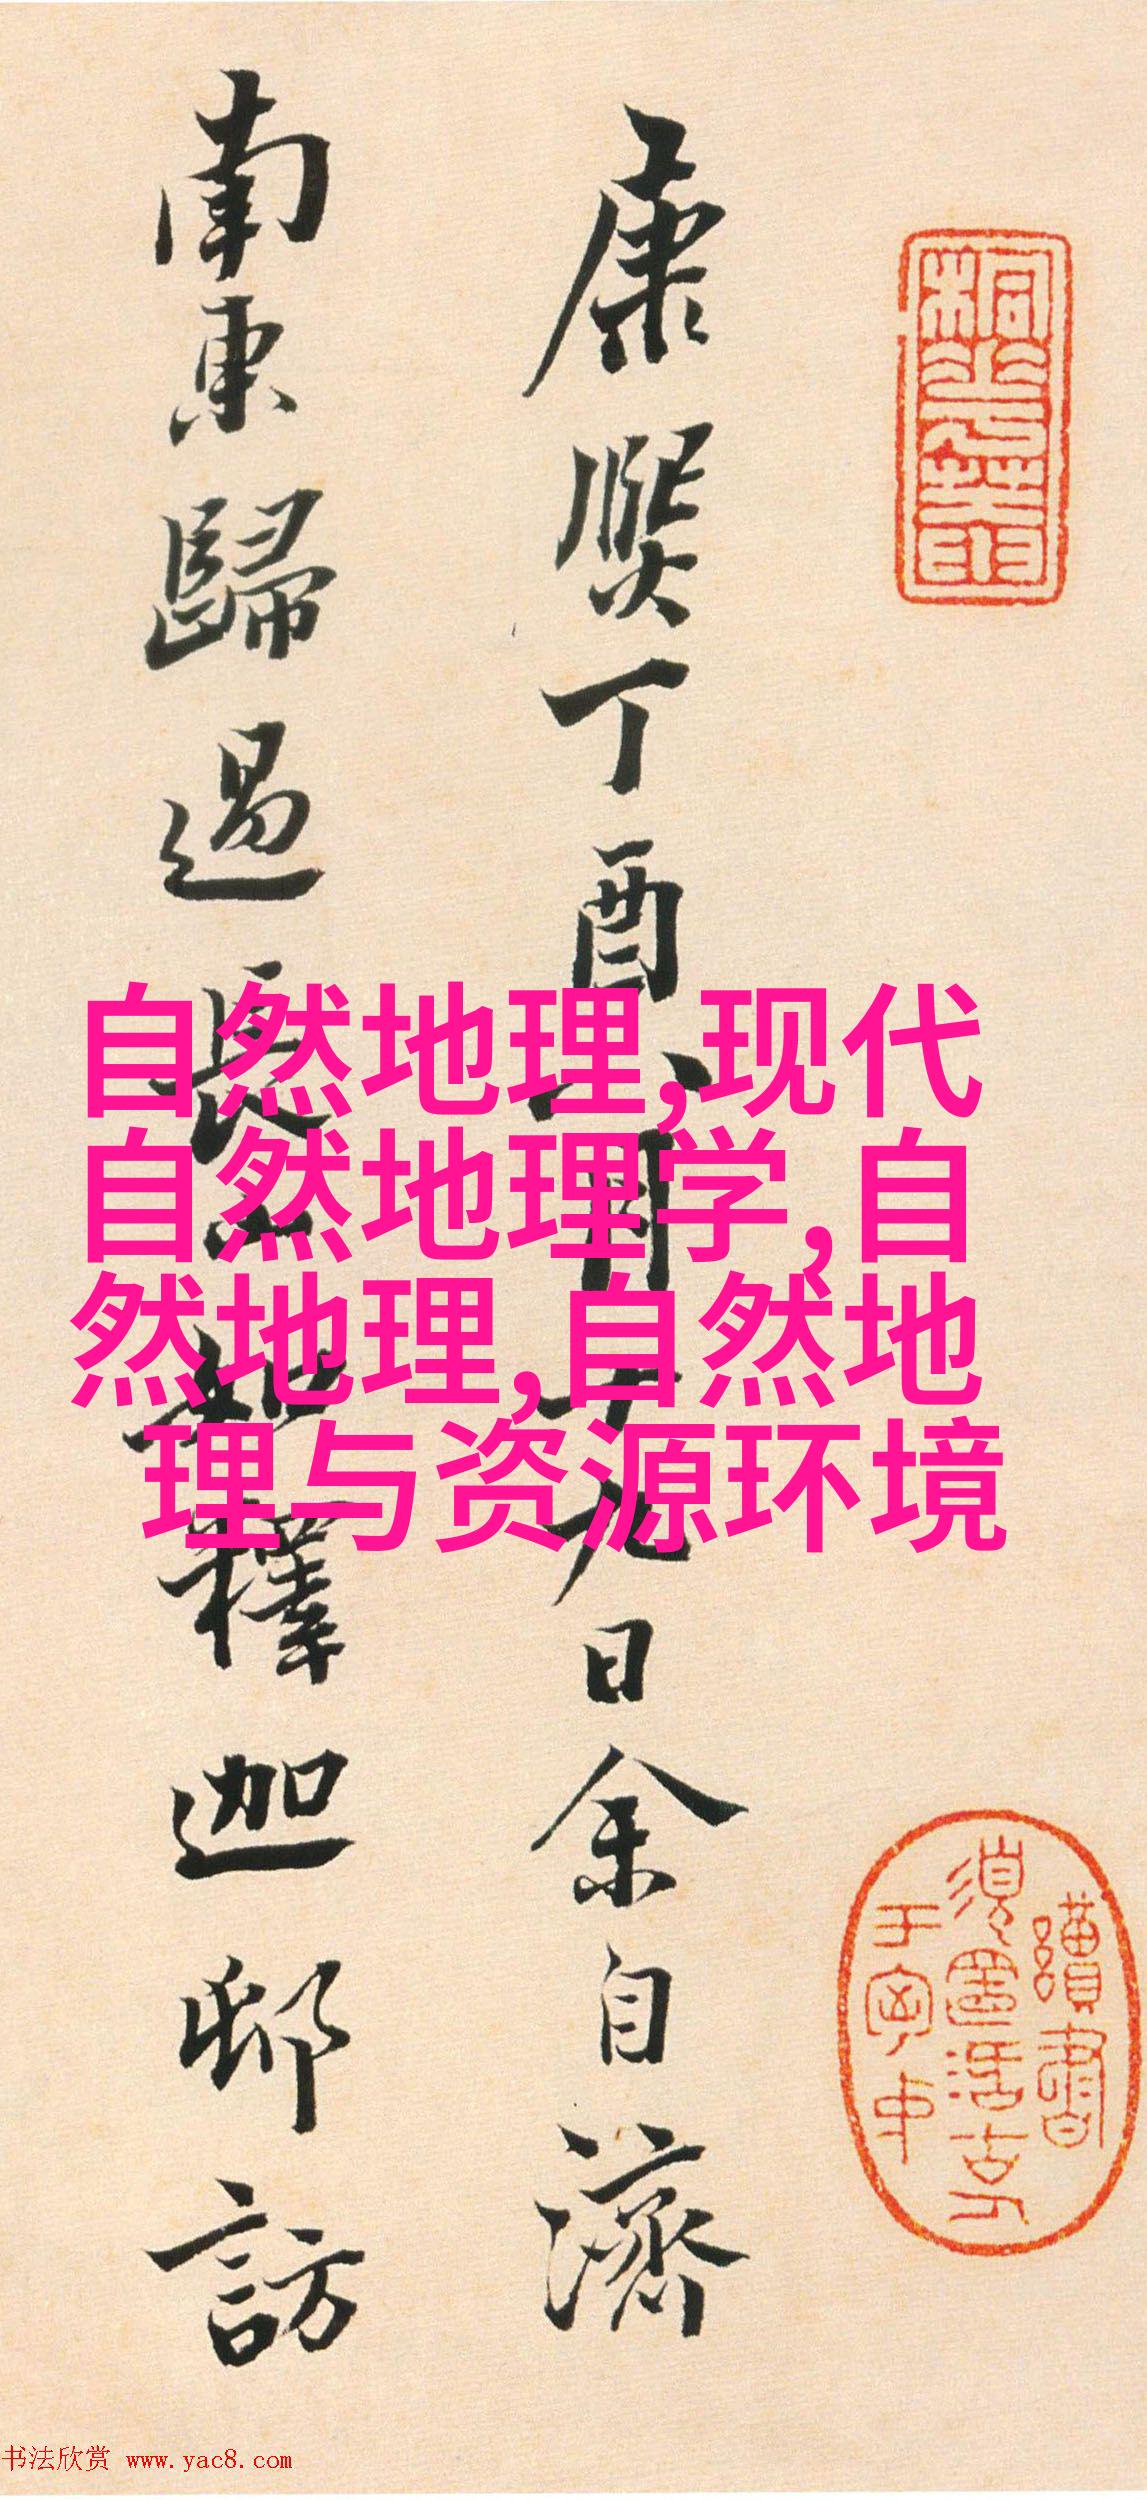 康熙丁酉八月十九日余自濟
南東歸過長山知釋迦邨訪
自然地理,现代
自然地理学,自
然地理,自然地
理与资源环境
书法欣赏 www.yac8.com